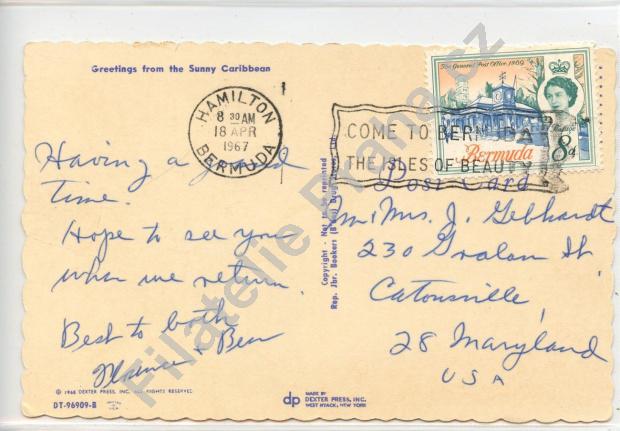 Greetings from the Sunny Caribbean
HAMILTON
8 30 AM
18 APR
1967
BERMUDA
COME TO BERMUDA
THE ISLES OF BEAUTY
The General Post Office 1869
Bermuda
8d
Post Card
Having a good
time.
Hope to see you
when we return.
Best to both
Florence & Ben
Mr Mrs. J. Gebhardt
230 Gralan St
Catonsville,
28 Maryland
USA
Copyright - Not to be reprinted
Rep. Jhr. Bookers (B'dos) Drug Stores Ltd.
© 1966 DEXTER PRESS, INC. ALL RIGHTS RESERVED.
DT-96909-B
dp
MADE BY
DEXTER PRESS, INC.
WEST NYACK, NEW YORK
Filatelie-Praha.cz